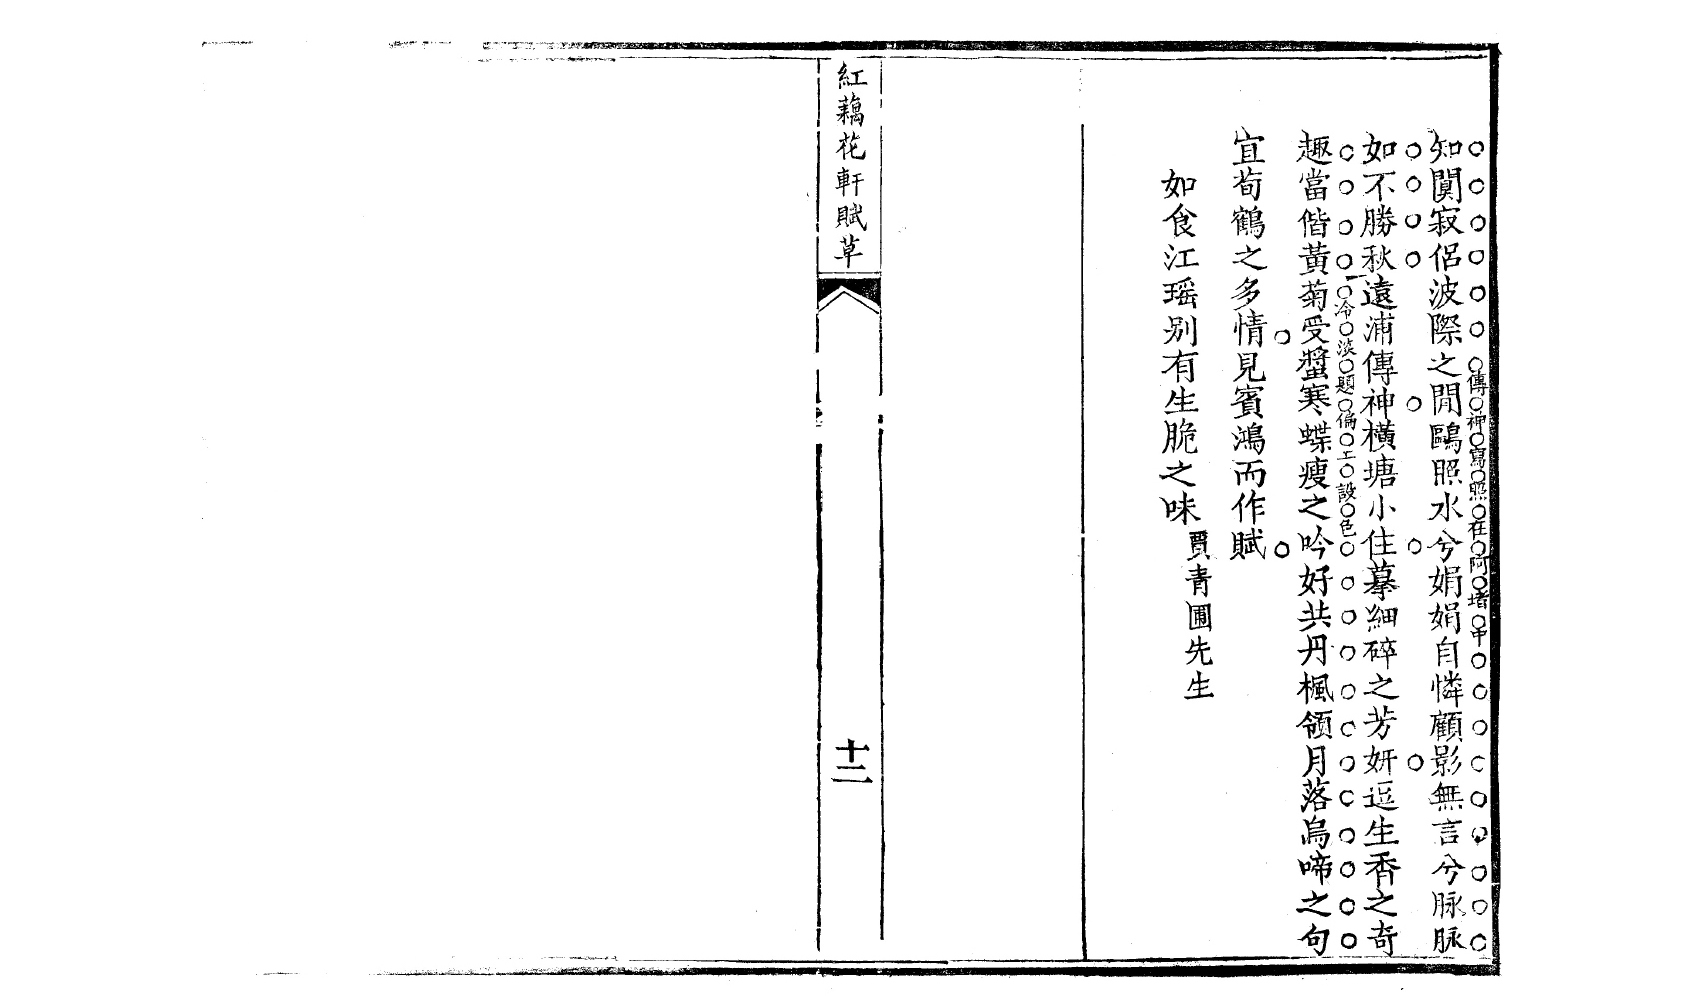 知闃寂侶波際之閒鷗照水兮娟娟自憐顧影無言兮脉脉
傳神寫照在阿堵中
如不勝秋遠浦傳神橫塘小住摹細碎之芳妍逗生香之奇
冷淡題偏工設色
趣當偕黃菊受螿寒蝶瘦之吟好共丹楓領月落烏啼之句
宜荀鶴之多情見賓鴻而作賦
如食江瑶别有生脆之味
賈青圃先生
紅藕花軒賦草
十二